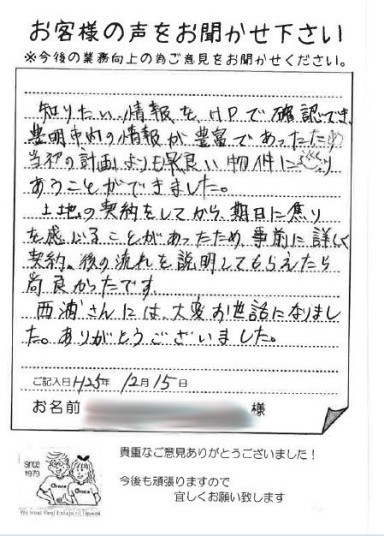 お客様の声をお聞かせ下さい
※今後の業務向上の為ご意見をお聞かせください。
知りたい情報をHPで確認でき、
豊明市内の情報が豊富であったため
当初の計画よりも良い物件にめぐり
あうことができました。
土地の契約をしてから期日に焦り
を感じることがあったため、事前に詳しく
契約。後の流れを説明してもらえたら
尚良かったです。
西浦さんには、大変お世話になりまし
た。ありがとうございました。
ご記入日 H25年 12月 15日
お名前 様
貴重なご意見ありがとうございました！
since
1979
今後も頑張りますので
宜しくお願い致します